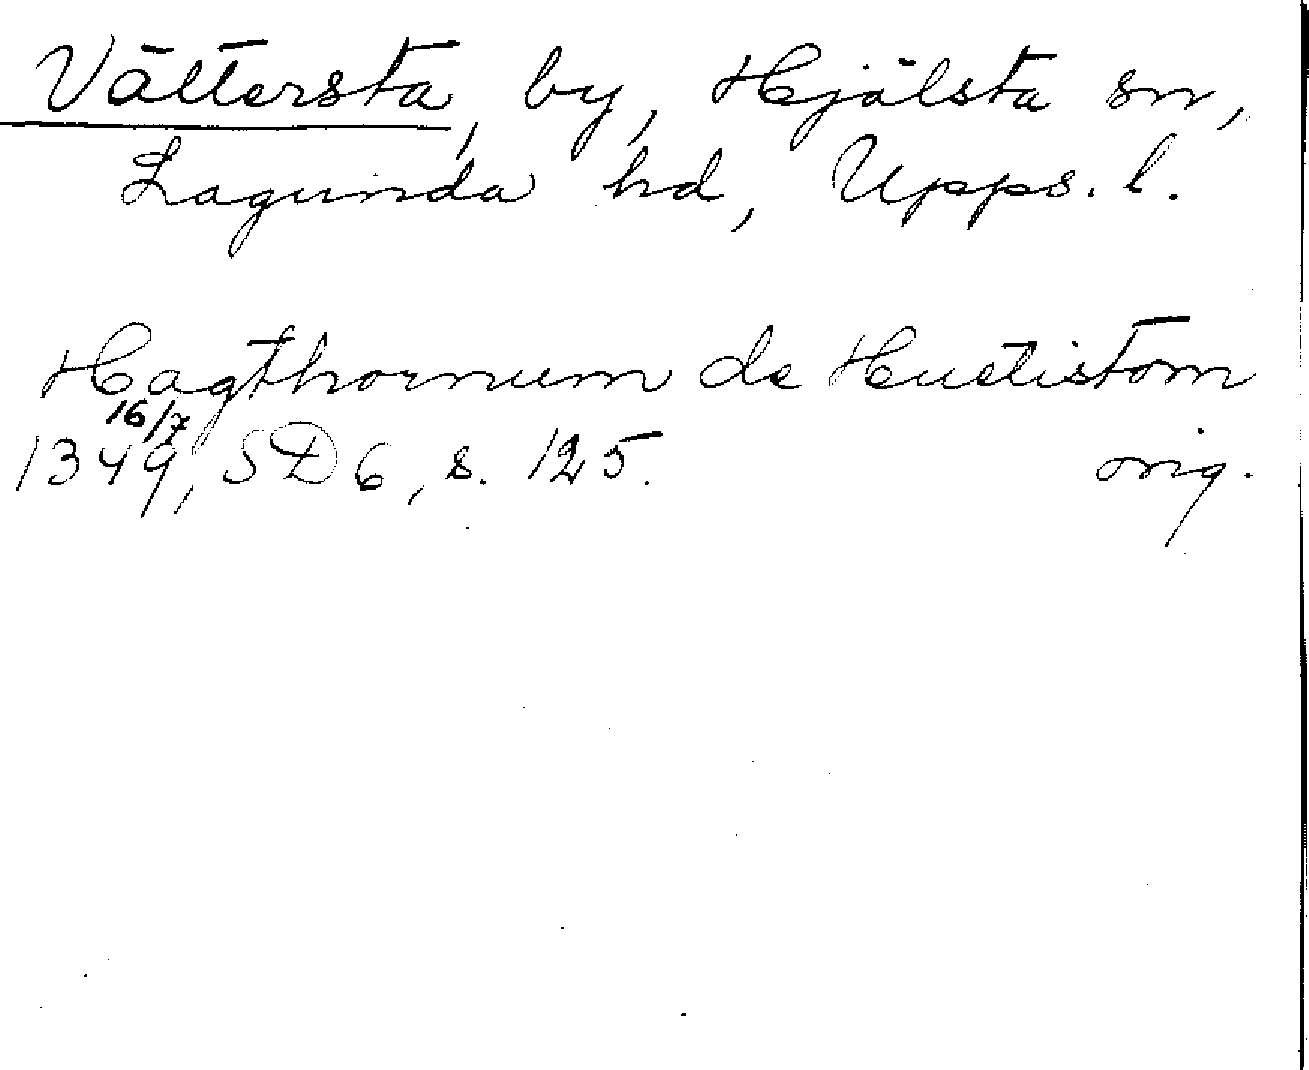 Vättersta, by, Hjälsta sn,
Lagunda hd, Upps. l.
Hagthornum de Huetistom
16/7
1349, SD 6, s. 125. orig.